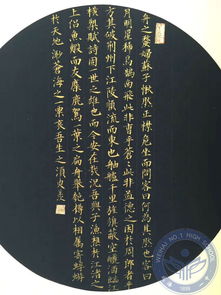 舟之嫠婦蘇子愀然正襟危坐而問客曰何為其然也客曰
烏鵲南飛此非孟德之困於周郎者乎
方其破荊州下江陵順流而東也舳艫千里旌旗蔽空釃酒臨江
橫槊賦詩固一世之雄也而今安在哉況吾與子漁樵於江渚之
上侶魚蝦而友麋鹿駕一葉之扁舟舉匏樽以相屬寄蜉蝣
於天地渺滄海之一粟哀吾生之須臾羨
WEIHAI NO.1 HIGH SCHOOL